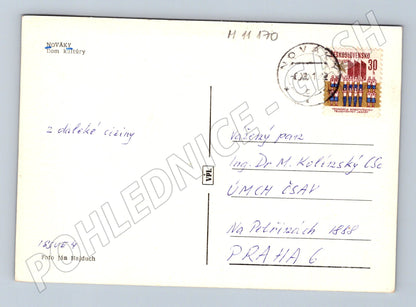 M 11 170
NOVÁKY
Dom kultúry
NOVÁKY
ČESKOSLOVENSKO
30
z daleké ciziny
Vážený pan
Ing. Dr M. Kolínský CSc
ÚMCH ČSAV
Na Petřinách 1888
PRAHA 6
VPL
Foto Hajduch
POHLEDNICE - CASH